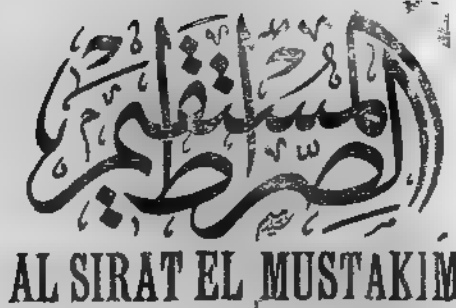 الصرط المستقيم
AL SIRAT EL MUSTAKIM